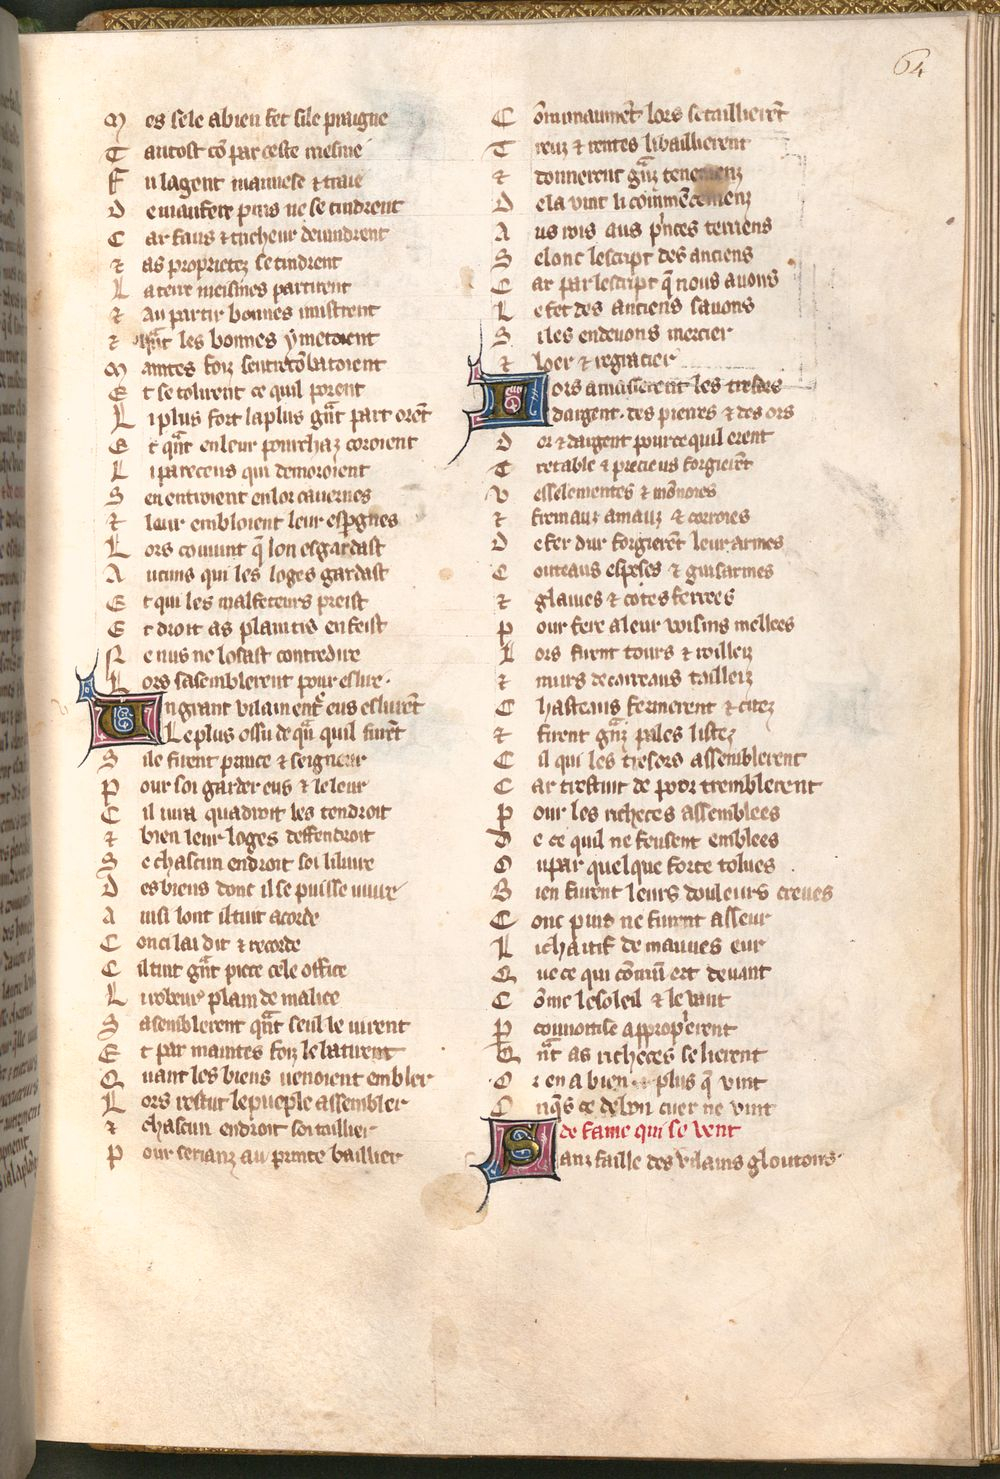 64
M es se le a bien fet si le praigne
T antost cō par ceste mesnie
F u la gent mauuese ⁊ traie
D e uiaufere puis ne se tindrent
C ar faus ⁊ tricheur deuindrent
⁊ as proprietez se tindrent
L a terre meismes partirent
⁊ au partir bonnes i mistrent
⁊ quāt les bonnes y metoient
M aintes foiz sentrecōbatoient
E t se tolirent ce quil porent
L i plus fort la plus gāt part orēt
E t quāt en leur pourchaz coroient
L i pareceus qui demoroient
S en entroient en lor cauernes
⁊ leur embloient leur espgnes
L ors couuint q̄ lon esgardast
A ucuns qui les loges gardast
E t qui les malfeteurs preist
E t droit as plaintis en feist
N e nus ne losast contredire
L ors sasemblerent pour eslire
U n grant vilain entr̄ eus eslurēt
L e plus ossu de quā quil furēt
S i le firent prince ⁊ seigneur
P our soi garder eus ⁊ le leur
C il iura qua droit les tendroit
⁊ bien leur loges deffendroit
S e chascun endroit soi li liure
D es biens dont il se puisse viure
A insi lont il tuit acorde
C on cil a dit ⁊ recorde
C il tint gāt piece cele office
L i robeur plain de malice
S asemblerent quāt seul le virent
E t par maintes foiz le batirent
Q uant les biens uenoient embler
L ors restut le pueple assembler
⁊ chascun endroit soi taillier
P our serianz au prince baillier
C ōmunaumēt lors se taillierēt
T reuz ⁊ rentes li baillierent
⁊ donnerent grāz tenemenz
D e la vint li commēcemenz
A us rois aus p̄nces terriens
S elonc lescript des anciens
C ar par lescript q̄ nous auons
L e fet des anciens sauons
S i les en deuons mercier
⁊ loer ⁊ regracier
L ors amasserent les tresors
dargent des pierres ⁊ des ors
D or ⁊ dargent pour ce quil erent
T retable ⁊ precieus forgierēt
V esselementes ⁊ mōnoies
⁊ fremauz amauz ⁊ corroies
D e fer dur forgierēt leur armes
C outeaus espees ⁊ guisarmes
⁊ glaiues ⁊ cotes ferrees
P our fere a leur voisins mellees
L ors firent tours ⁊ roilleiz
⁊ murs de carreaus tailleiz
C hasteaus fermerent ⁊ citez
⁊ firent grāz pales listez
C il qui les tresors assemblerent
C ar trestuit de poor tremblerent
P our les richeces assemblees
D e ce quil ne feusent emblees
O u par quelque forte tolues
B ien furent leurs douleurs creues
C onc puis ne furent asseur
L i chaitif de mauues eur
Q ue ce qui cōmū ert deuant
C ōme le soleil ⁊ le vant
P couuoitise approp̄erent
Q nāt as richeces se lierent
O r en a bien plus q̄ vint
O nq̄s ce de bon cuer ne vint
de fame qui se vent
S anz faille des vilains gloutons